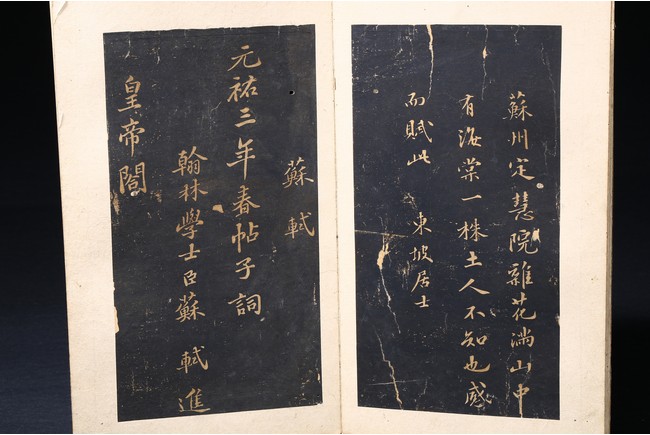 蘇州定慧院雜花滿山中
有海棠一株土人不知也感
而賦此　東坡居士
蘇軾
元祐三年春帖子詞
翰林學士臣蘇軾進
皇帝閣